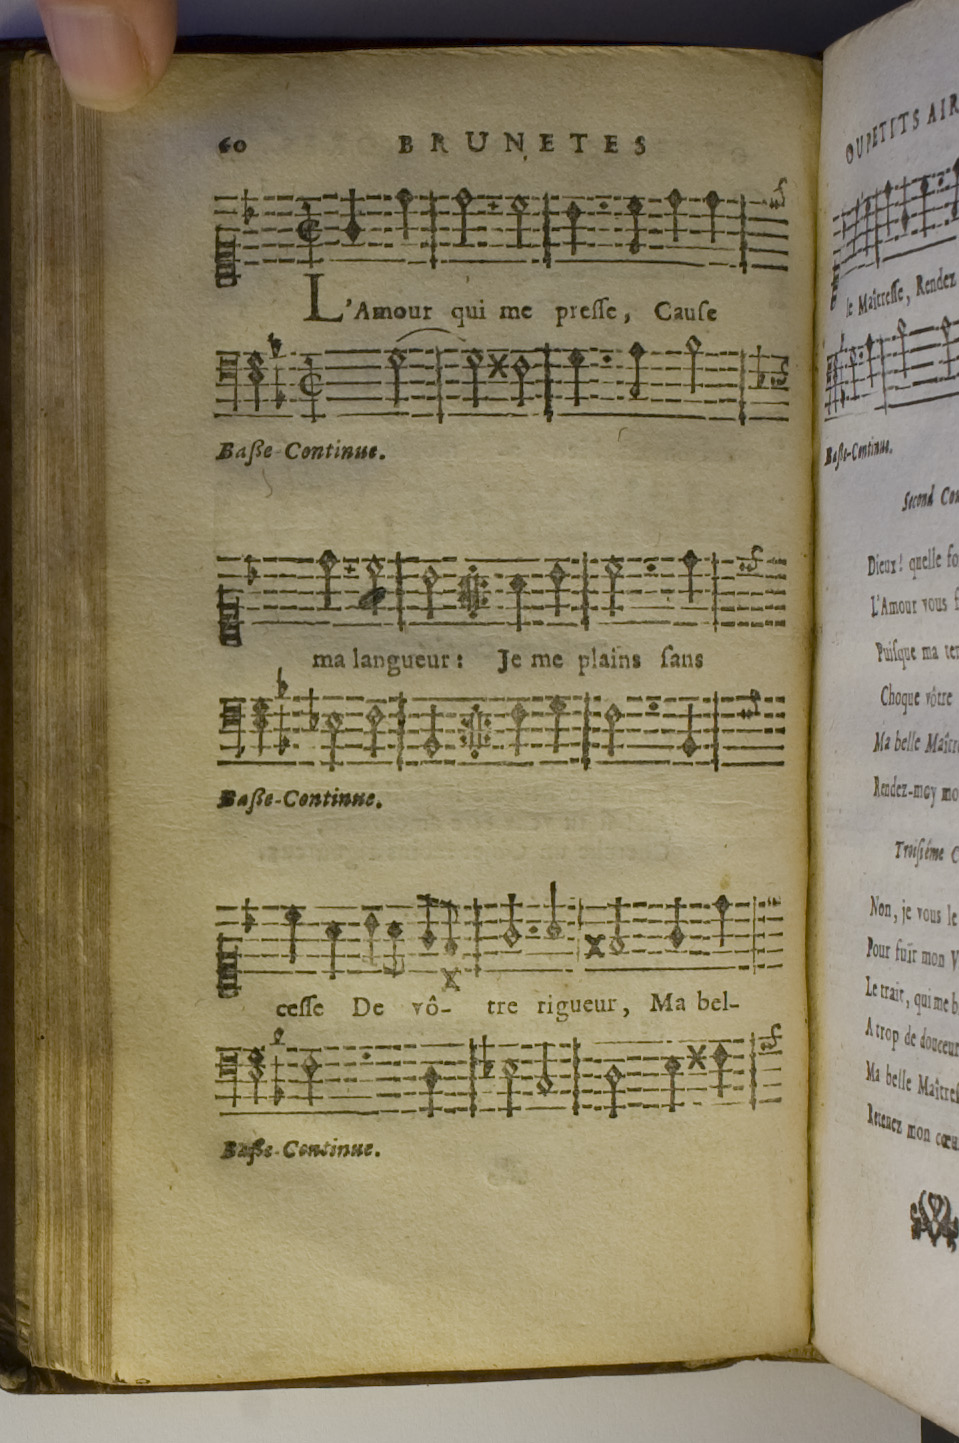 60 BRUNETES
L'Amour qui me presse, Cause
Basse-Continue.
ma langueur : Je me plains sans
Basse-Continue.
cesse De vô- tre rigueur, Ma bel-
Basse-Continue.
OU PETITS AIR
le Maîtresse, Rendez
Basse-Continue.
Second
Dieux! quelle
L'Amour vous
Puisque ma
Choque vôtre
Ma belle
Rendez-moy
Troisiéme
Non, je vous le
Pour fuïr mon
Le trait, qui me
A trop de douceur
Ma belle
Retenez mon